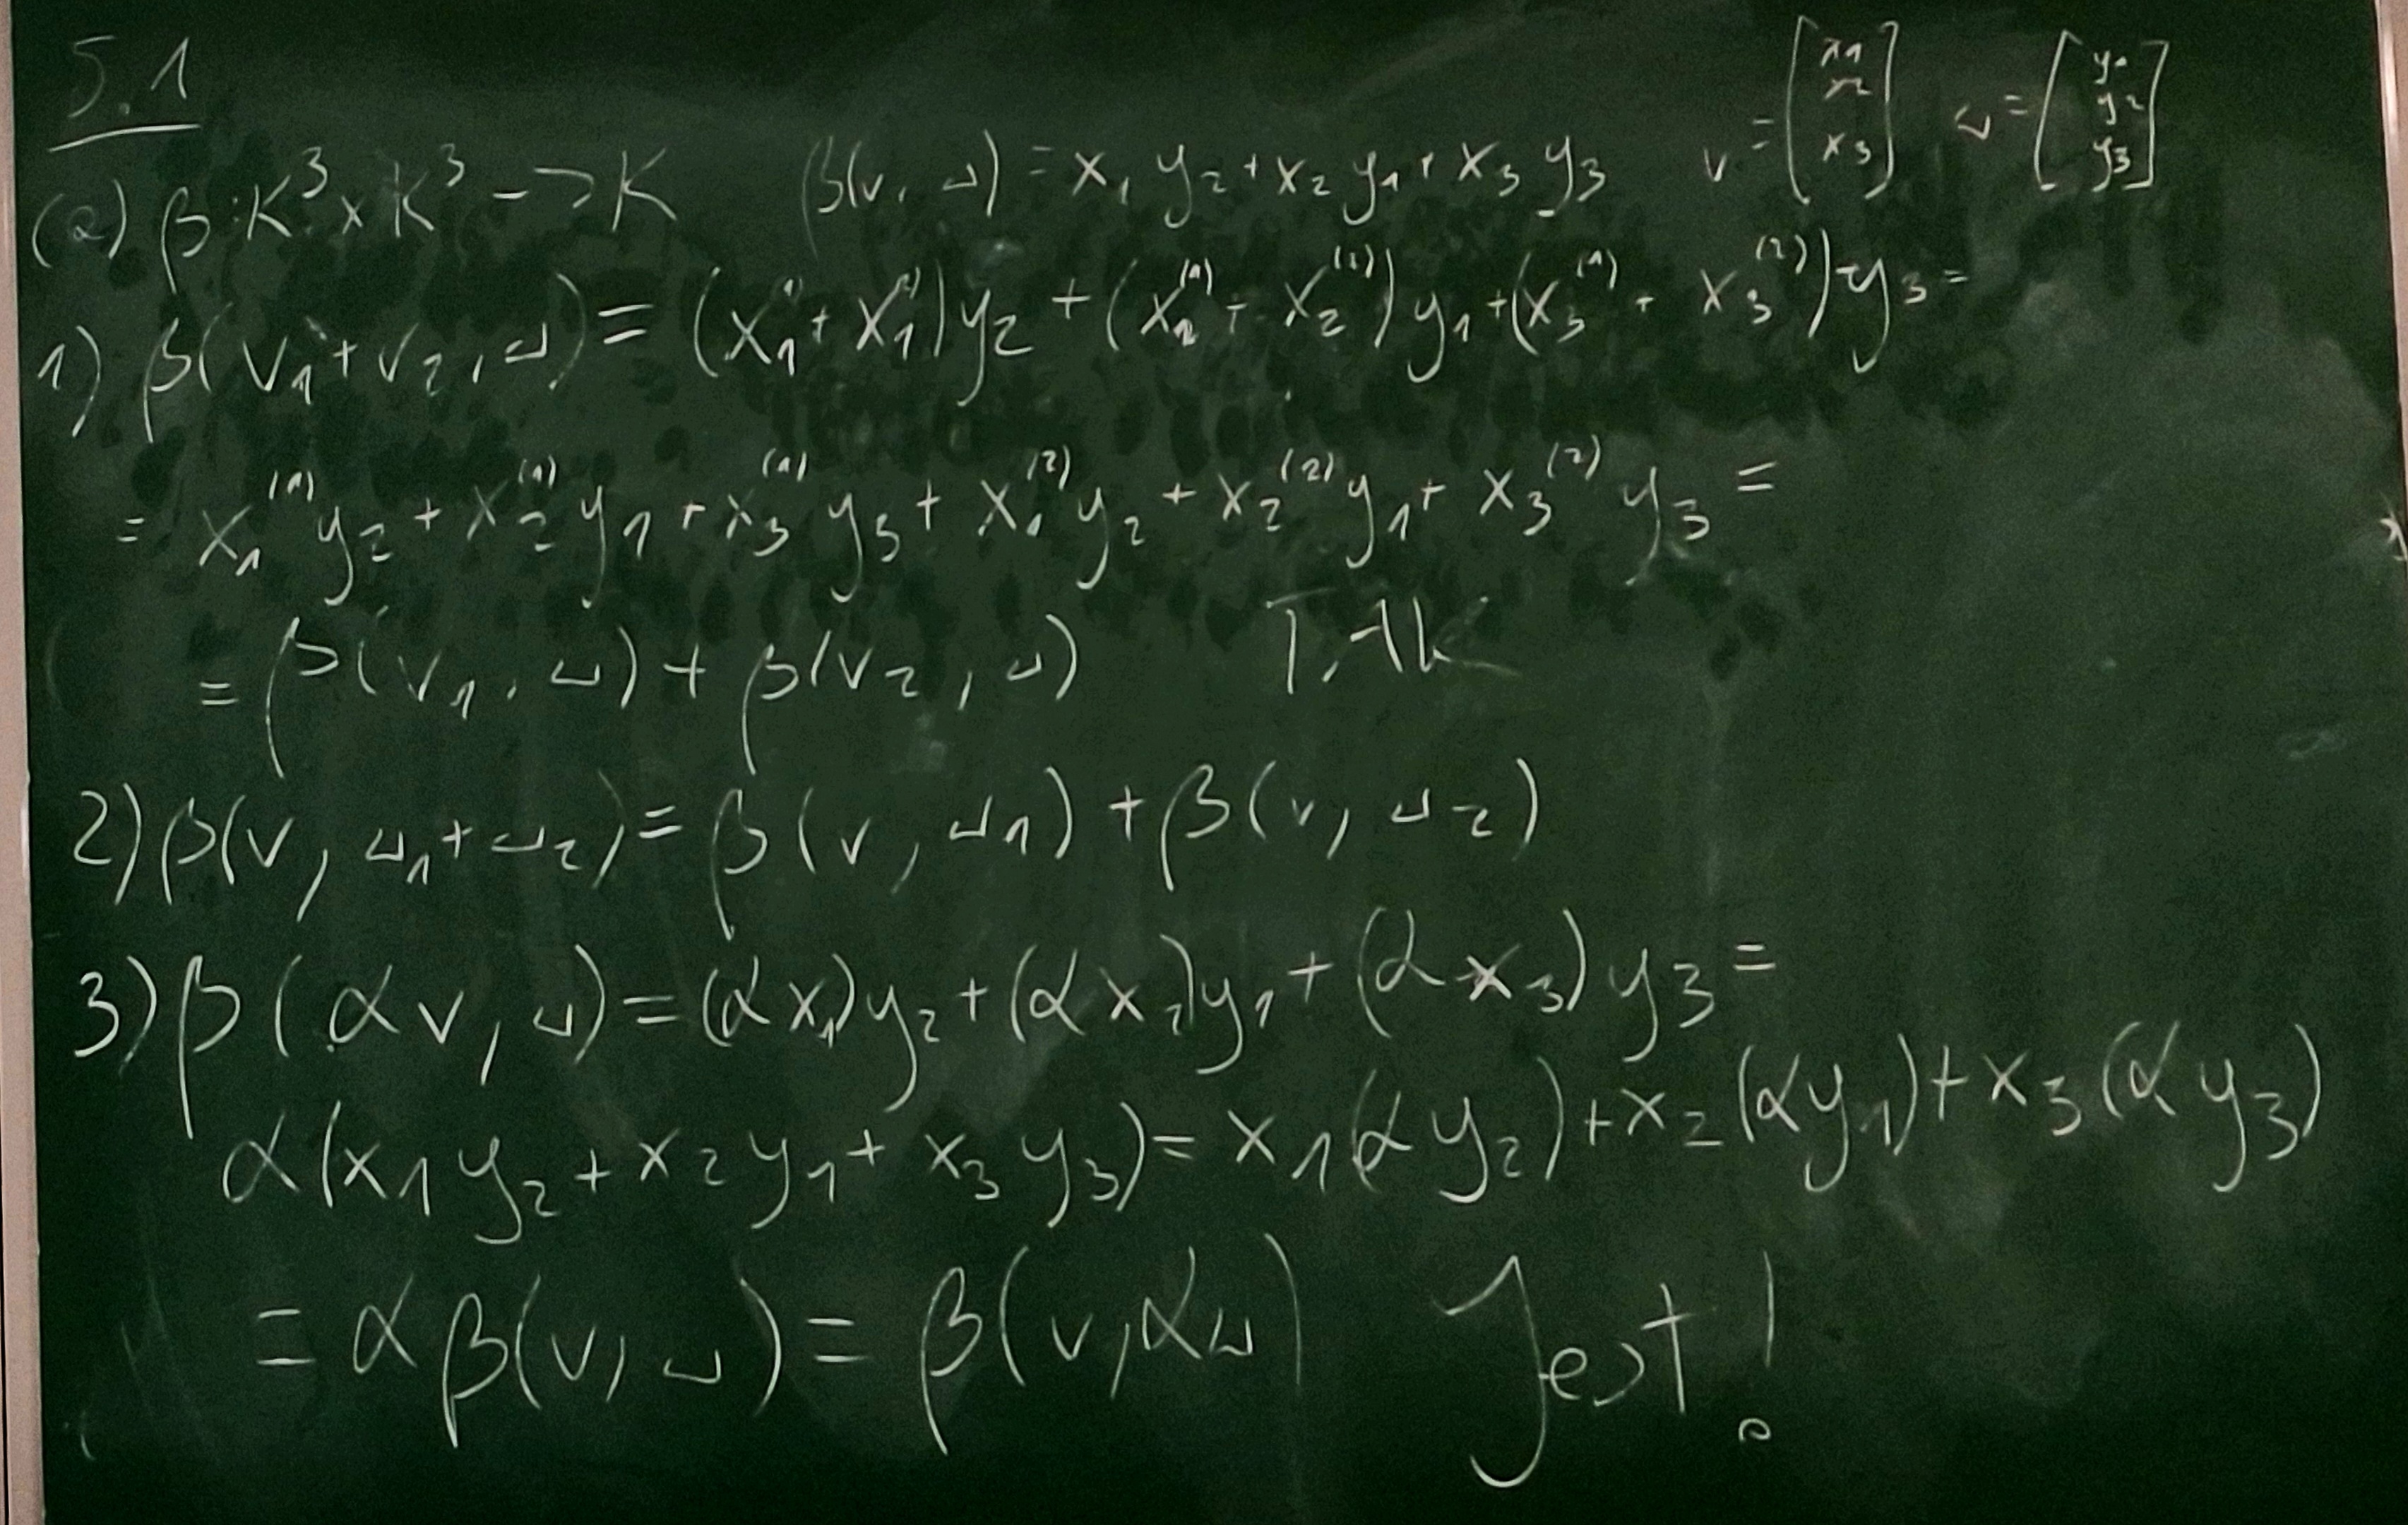 5.1
(a) β: K³ x K³ -> K β(v, w) = x₁ y₂ + x₂ y₁ + x₃ y₃ v = [x₁ x₂ x₃] w = [y₁ y₂ y₃]
1) β(v₁ + v₂, w) = (x₁⁽¹⁾ + x₁⁽²⁾) y₂ + (x₂⁽¹⁾ + x₂⁽²⁾) y₁ + (x₃⁽¹⁾ + x₃⁽²⁾) y₃ =
= x₁⁽¹⁾ y₂ + x₂⁽¹⁾ y₁ + x₃⁽¹⁾ y₃ + x₁⁽²⁾ y₂ + x₂⁽²⁾ y₁ + x₃⁽²⁾ y₃ =
= β(v₁, w) + β(v₂, w) TAK
2) β(v, w₁ + w₂) = β(v, w₁) + β(v, w₂)
3) β(αv, w) = (αx₁) y₂ + (αx₂) y₁ + (αx₃) y₃ =
α(x₁ y₂ + x₂ y₁ + x₃ y₃) = x₁(αy₂) + x₂(αy₁) + x₃(αy₃)
= αβ(v, w) = β(v, αw) Jest!